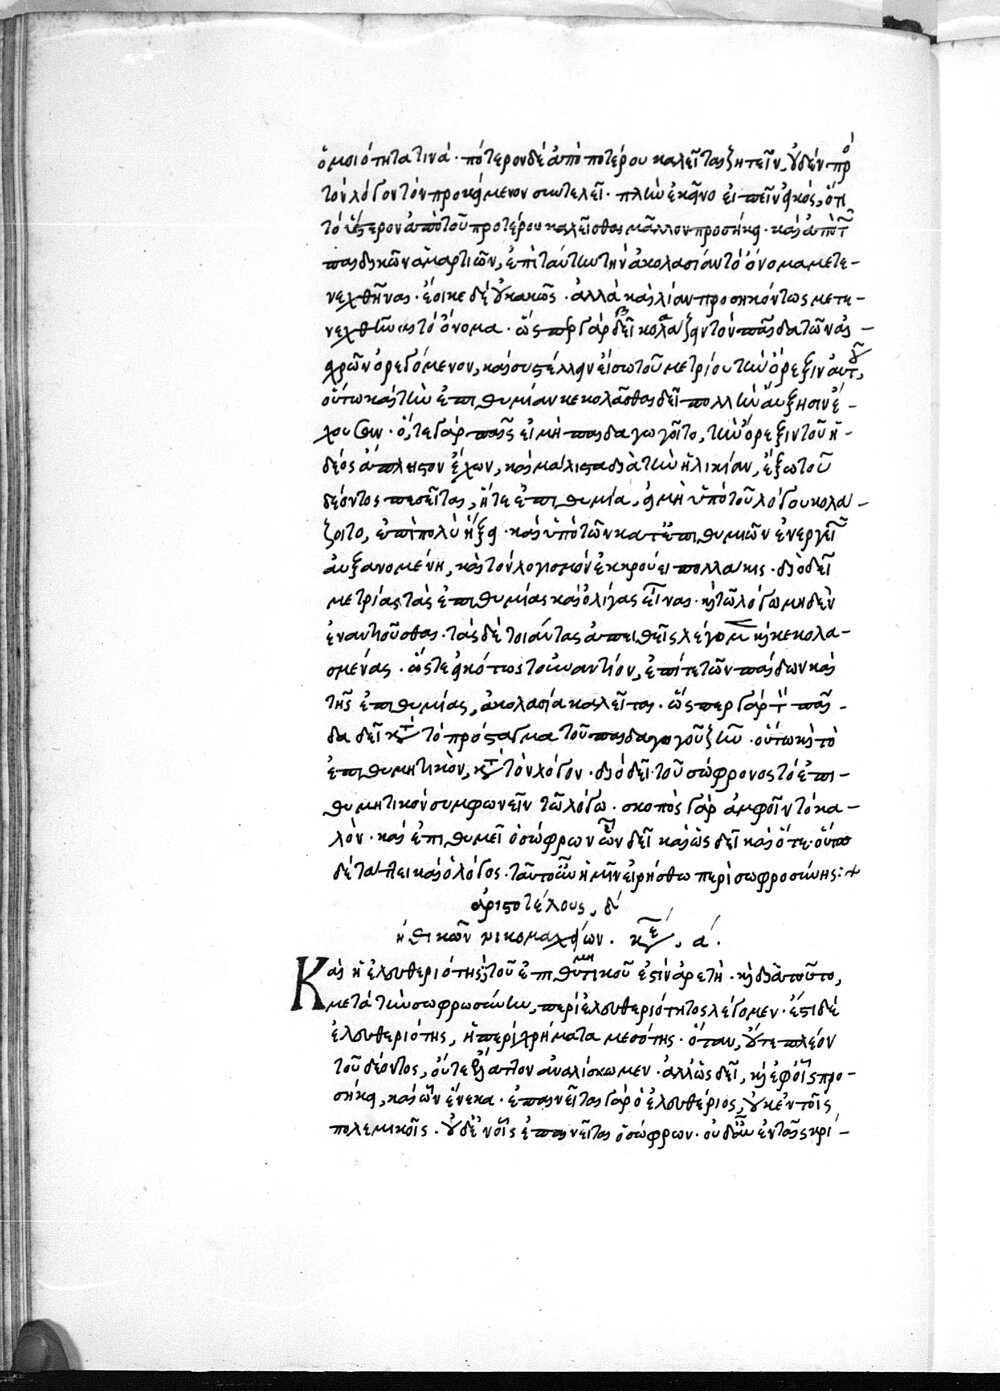 ὁμοιότητα τινά· πότερον δὲ ἀπὸ ποτέρου καλεῖται ζητεῖν, οὐδὲν πρὸ
τὸν λόγον τὸν προκείμενον συντελεῖ· πλὴν ἐκεῖνο εἰπεῖν εἰκός, ὅτι
τὸ ὕστερον ἀπὸ τοῦ προτέρου καλεῖσθαι μᾶλλον προσήκει· καὶ ἀπὸ τῶν
παιδικῶν ἁμαρτιῶν, ἐπὶ ταύτην τὴν ἀκολασίαν τὸ ὄνομα μετε-
νεχθῆναι· ἔοικε δὲ οὐ κακῶς· ἀλλὰ καὶ λίαν προσηκόντως μετε-
νεχθῆναι τὸ ὄνομα· ὥσπερ γὰρ δεῖ κολάζειν τὸν παῖδα τῶν αἰς-
χρῶν ὀρεγόμενον, καὶ συστέλλειν εἰς τὸ τοῦ μετρίου τὴν ὄρεξιν αὐτοῦ,
οὕτω καὶ τὴν ἐπιθυμίαν κεκολᾶσθαι δεῖ πολλὴν αὔξησιν ἔ-
χουσαν· ὅ, τε γὰρ παῖς εἰ μὴ παιδαγωγοῖτο, τὴν ὄρεξιν τοῦ ἡ-
δέος ἄπληστον ἔχων, καὶ μάλιστα διὰ τὴν ἡλικίαν, ἔξω τοῦ
δέοντος πεσεῖται, ἥτε ἐπιθυμία, εἰ μὴ ὑπὸ τοῦ λόγου κολά-
ζοιτο, ἐπιπολὺ ἥξει· καὶ ὑπὸ τῶν κατ' ἐπιθυμιῶν ἐνεργειῶν
αὐξανομένη, καὶ τὸν λογισμὸν ἐκκρούει πολλάκις· διὸ δεῖ
μετρίας τὰς ἐπιθυμίας καὶ ὀλίγας εἶναι· καὶ τῶ λόγω μηδὲν
ἐναντιοῦσθαι· τὰς δὲ τοιαύτας εὐπειθεῖς λέγομεν καὶ κεκολα-
σμένας· ὥστε εἰκότως τοὐναντίον, ἐπί τε τῶν παίδων καὶ
τῆς ἐπιθυμίας, ἀκολασία καλεῖται· ὥσπερ γὰρ τὸν παῖ-
δα δεῖ κατὰ τὸ πρόσταγμα τοῦ παιδαγωγοῦ ζῆν· οὕτω καὶ τὸ
ἐπιθυμητικὸν, κατὰ τὸν λόγον· διὸ δεῖ τοῦ σώφρονος τὸ ἐπι-
θυμητικὸν συμφωνεῖν τῶ λόγω· σκοπὸς γὰρ ἀμφοῖν τὸ κα-
λόν· καὶ ἐπιθυμεῖ ὁ σώφρων ὧν δεῖ καὶ ὡς δεῖ καὶ ὅτε· οὕτω
δὲ τάττει καὶ ὁ λόγος· ταῦτα οὖν ἡμῖν εἰρήσθω περὶ σωφροσύνης:+
ἀριστοτέλους, δ΄
ἠθικῶν νικομαχείων· κεφ, α΄.
Καὶ ἡ ἐλευθεριότης, τοῦ ἐπιθυμητικοῦ ἐστὶν ἀρετὴ· καὶ διὰ τοῦτο,
μετὰ τὴν σωφρωσύνην, περὶ ἐλευθεριότητος λέγομεν· ἔστι δὲ
ἐλευθεριότης, ἡ περὶ χρήματα μεσότης· ὅταν, οὔτε πλέον
τοῦ δέοντος, οὔτε ἔλαττον ἀναλίσκωμεν· ἀλλ' ὡς δεῖ, καὶ ἐφ' οἷς προ-
σήκει, καὶ ὧν ἕνεκα· ἐπαινεῖται γὰρ ὁ ἐλευθέριος, οὐκ ἐν τοῖς
πολεμικοῖς· οὐδ' ἐν οἷς ἐπαινεῖται ὁ σώφρων· οὐδ' αὖ ἐν ταῖς κρί-